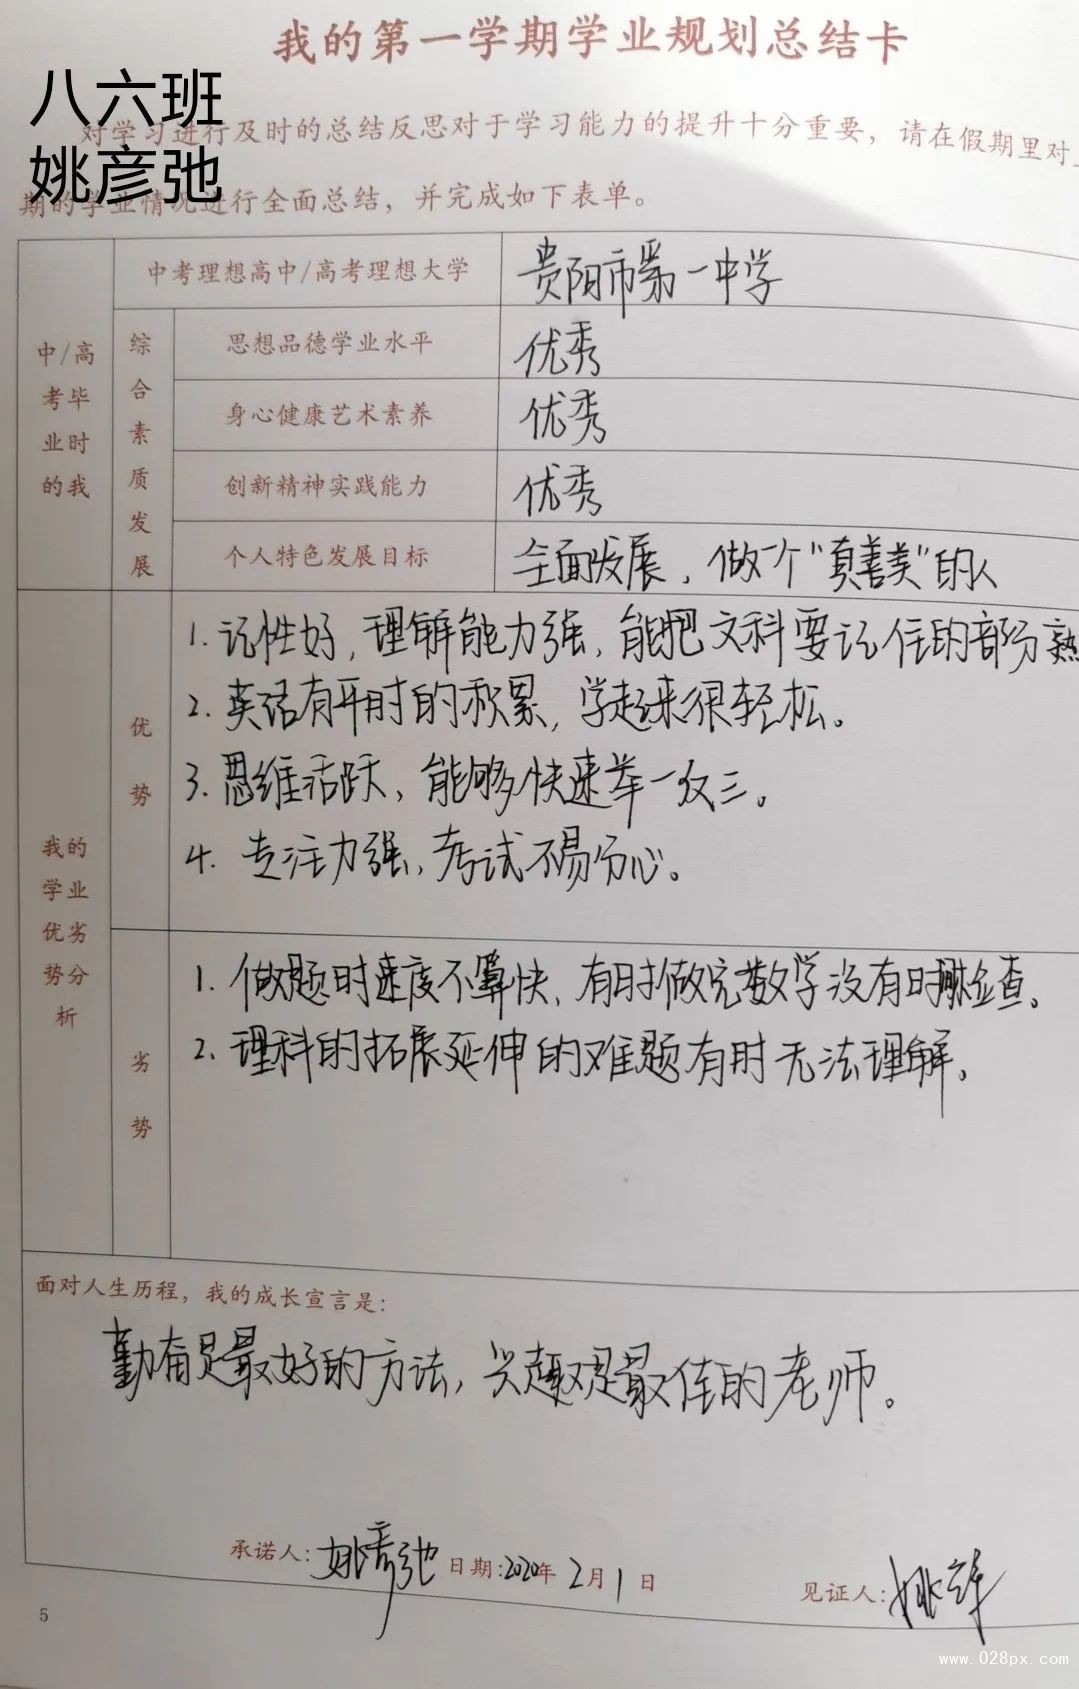 我的第一学期学业规划总结卡
八六班
对学习进行及时的总结反思对于学习能力的提升十分重要，请在假期里对
姚彦弛
期的学业情况进行全面总结，并完成如下表单。
中/高考毕业时的我
中考理想高中/高考理想大学
贵阳市第一中学
综合素质发展
思想品德学业水平
优秀
身心健康艺术素养
优秀
创新精神实践能力
优秀
个人特色发展目标
全面发展，做一个“真善美”的人
我的学业优劣势分析
优势
1. 记性好，理解能力强，能把文科要记住的部分熟
2. 英语有平时的积累，学起来很轻松。
3. 思维活跃，能够快速举一反三。
4. 专注力强，考试不易分心。
劣势
1. 做题时速度不算快，有时做完数学没有时间检查。
2. 理科的拓展延伸的难题有时无法理解。
面对人生历程，我的成长宣言是：
勤奋是最好的方法，兴趣是最佳的老师。
承诺人：姚彦弛 日期：2020年2月1日 见证人：姚
5
www.028px.com